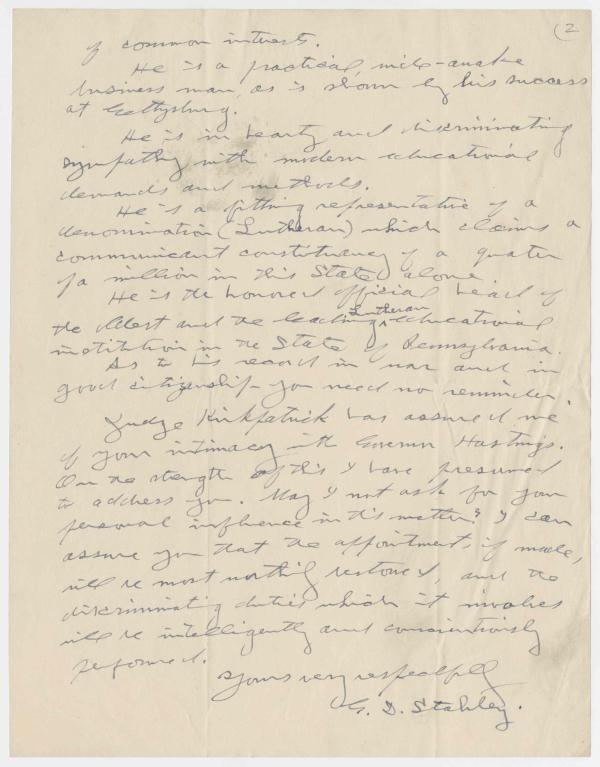 (2
of common interests.
He is a practical, wide-awake
business man, as is shown by his success
at Gettysburg.
He is in hearty and discriminating
sympathy with modern educational
demands and methods.
He is a fitting representative of a
denomination (Lutheran) which claims a
communicant constituency of a quarter
of a million in this State alone.
He is the honored official head of
the oldest and the leading Lutheran educational
institution in the State of Pennsylvania.
As to his record in war and in
good citizenship you need no reminder.
Judge Kirkpatrick has assured me
of your intimacy with Governor Hastings.
On the strength of this I have presumed
to address you. May I not ask for your
personal influence in this matter? I can
assure you that the appointment, if made,
will be most worthily bestowed, and the
discriminating duties which it involves
will be intelligently and conscientiously
performed.
Yours very respectfully
G. D. Stahley.